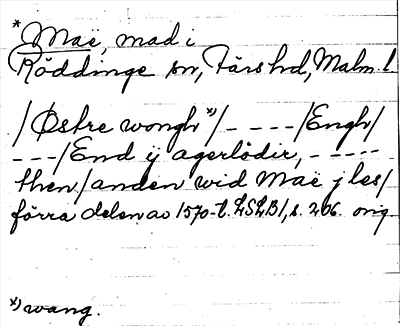 * Mae, mad i
Röddinge sn, Färs hd, Malm. l.
/Østre wongh *)/ - - - - /Engh/
- - - /End ij agerlödir, - - - - -
then/anden wid Maë j les/
förra delen av 1570-t. LSLB1, s. 206. orig.
*) wang.